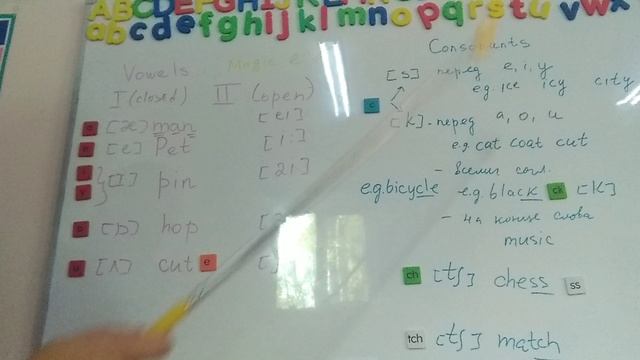 ABCDEFGHIJK
abcdefghijklmnopqrstuvwx
Vowels Magic e
I (closed) II (open)
e [æ] man [ei]
e [e] Pet [i:]
} [I] pin
[ɒ] hop
[ʌ] cut e
Consonants
c [s] перед e, i, y
eg. ice icy city
[k] - перед a, o, u
e.g. cat coat cut
- всеми согл.
e.g. bicycle e.g. black ck [k]
- на конце слова
music
ch [tʃ] chess ss
tch [tʃ] match